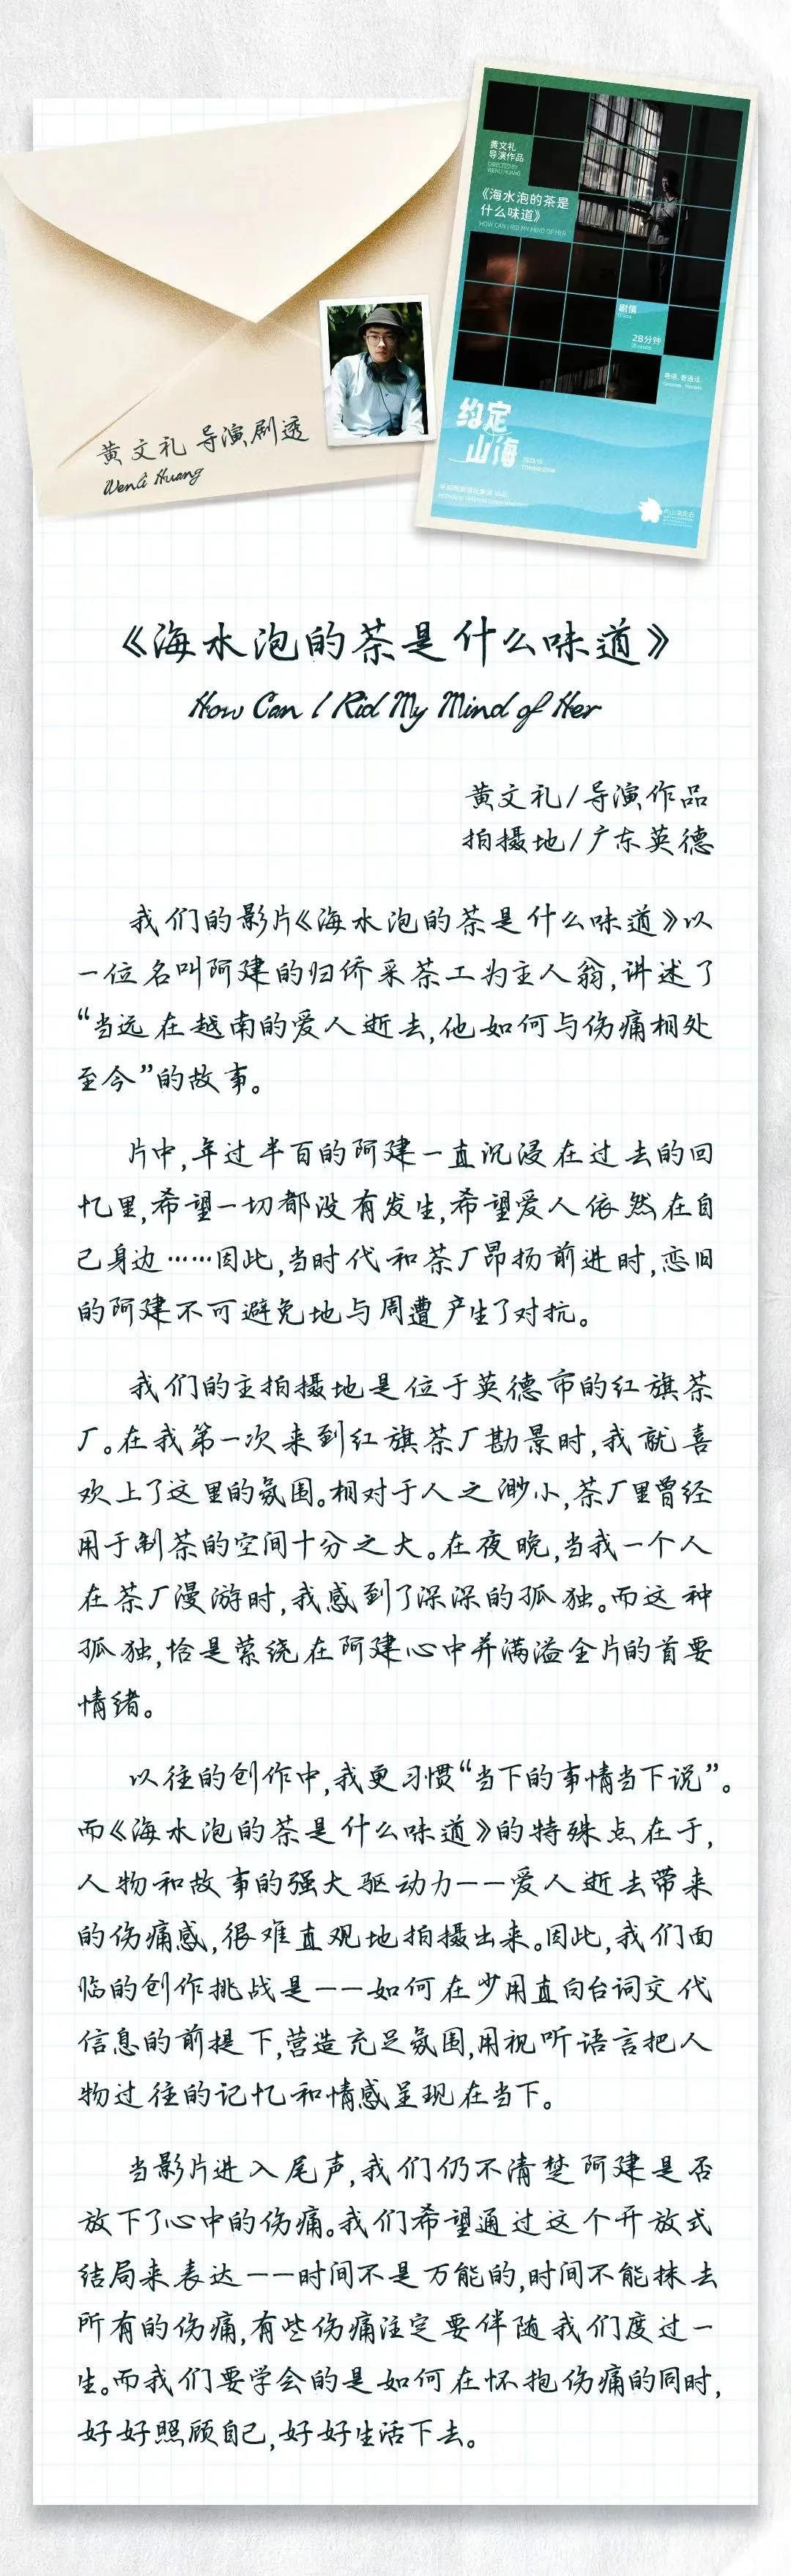 黄文礼
导演作品
DIRECTED BY
WENLI HUANG
《海水泡的茶是
什么味道》
HOW CAN I RID MY MIND OF HER
剧情
Drama
28分钟
粤语、普通话
约定
山海
黄文礼 导演剧透
Wenli Huang
《海水泡的茶是什么味道》
How Can I Rid My Mind of Her
黄文礼/导演作品
拍摄地/广东英德
我们的影片《海水泡的茶是什么味道》以
一位名叫阿建的归侨采茶工为主人翁,讲述了
“当远在越南的爱人逝去,他如何与伤痛相处
至今”的故事。
片中,年过半百的阿建一直沉浸在过去的回
忆里,希望一切都没有发生,希望爱人依然在自
己身边……因此,当时代和茶厂昂扬前进时,恋旧
的阿建不可避免地与周遭产生了对抗。
我们的主拍摄地是位于英德市的红旗茶
厂。在我第一次来到红旗茶厂勘景时,我就喜
欢上了这里的氛围。相对于人之渺小,茶厂里曾经
用于制茶的空间十分之大。在夜晚,当我一个人
在茶厂漫游时,我感到了深深的孤独。而这种
孤独,恰是萦绕在阿建心中并满溢全片的首要
情绪。
以往的创作中,我更习惯“当下的事情当下说”。
而《海水泡的茶是什么味道》的特殊点在于,
人物和故事的强大驱动力——爱人逝去带来
的伤痛感,很难直观地拍摄出来。因此,我们面
临的创作挑战是——如何在少用直白台词交代
信息的前提下,营造充足氛围,用视听语言把人
物过往的记忆和情感呈现在当下。
当影片进入尾声,我们仍不清楚阿建是否
放下了心中的伤痛。我们希望通过这个开放式
结局来表达——时间不是万能的,时间不能抹去
所有的伤痛,有些伤痛注定要伴随我们度过一
生。而我们要学会的是如何在怀抱伤痛的同时,
好好照顾自己,好好生活下去。